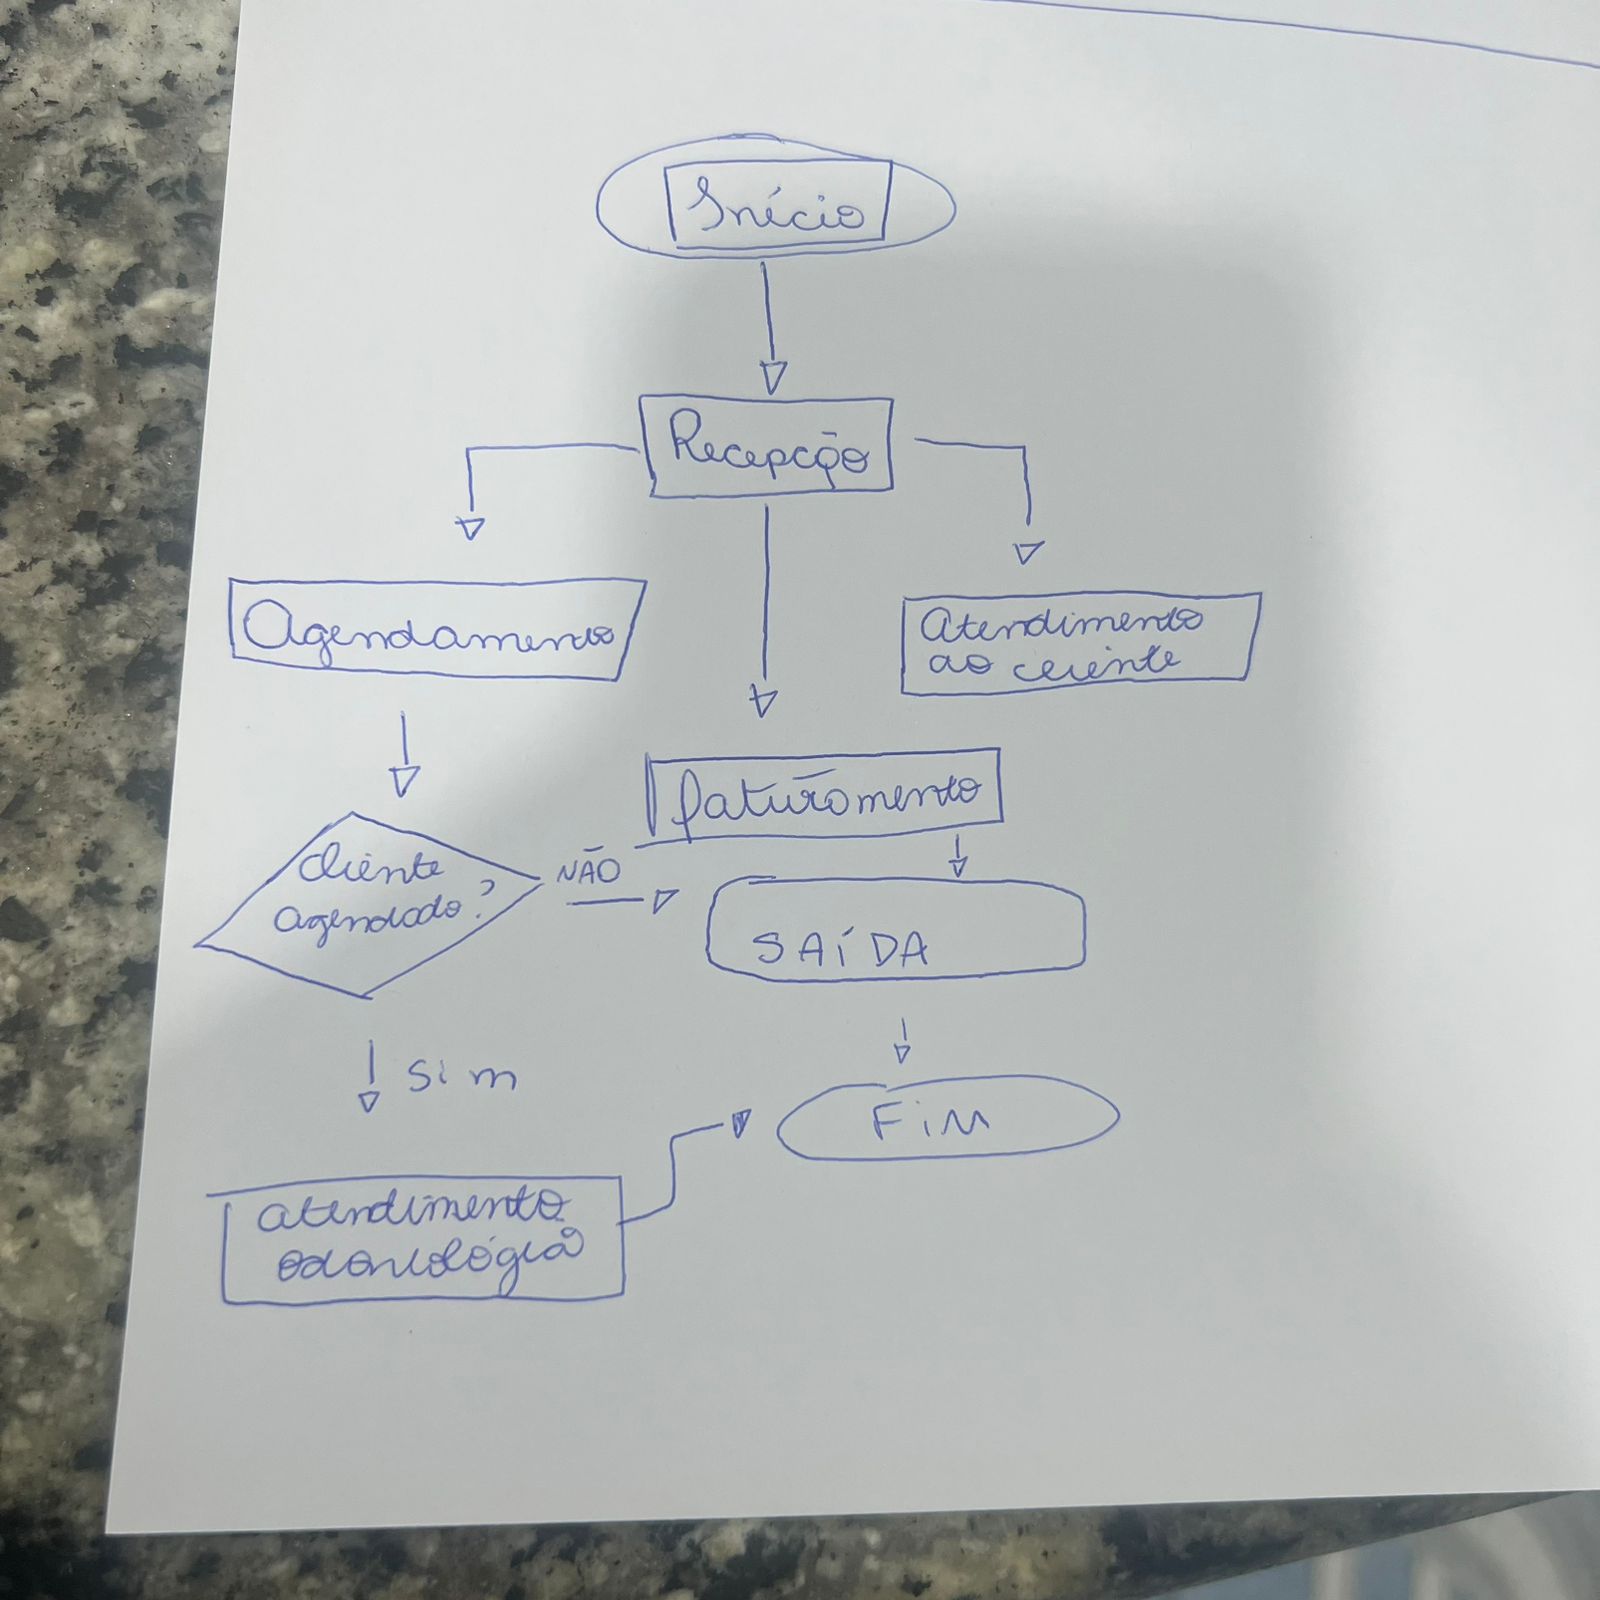 Início
Recepção
Agendamento
Atendimento
ao cliente
faturamento
cliente
agendado?
NÃO
SAÍDA
Sim
FiM
atendimento
odontológia